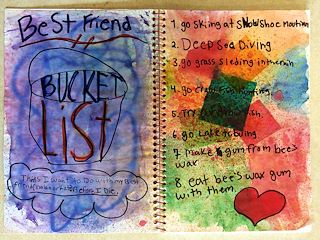 Best Friend
BUCKET
LiST
Things I want to Do with my Best
Friend
I Die.
1. go skiing at Snowshoe Mountain
2. Deep Sea Diving
3. go grass sleding in the rain
4. go
5. Try
6. go Lake tubing
7. Make gum from bee's
wax
8. eat bee's wax gum
with them.